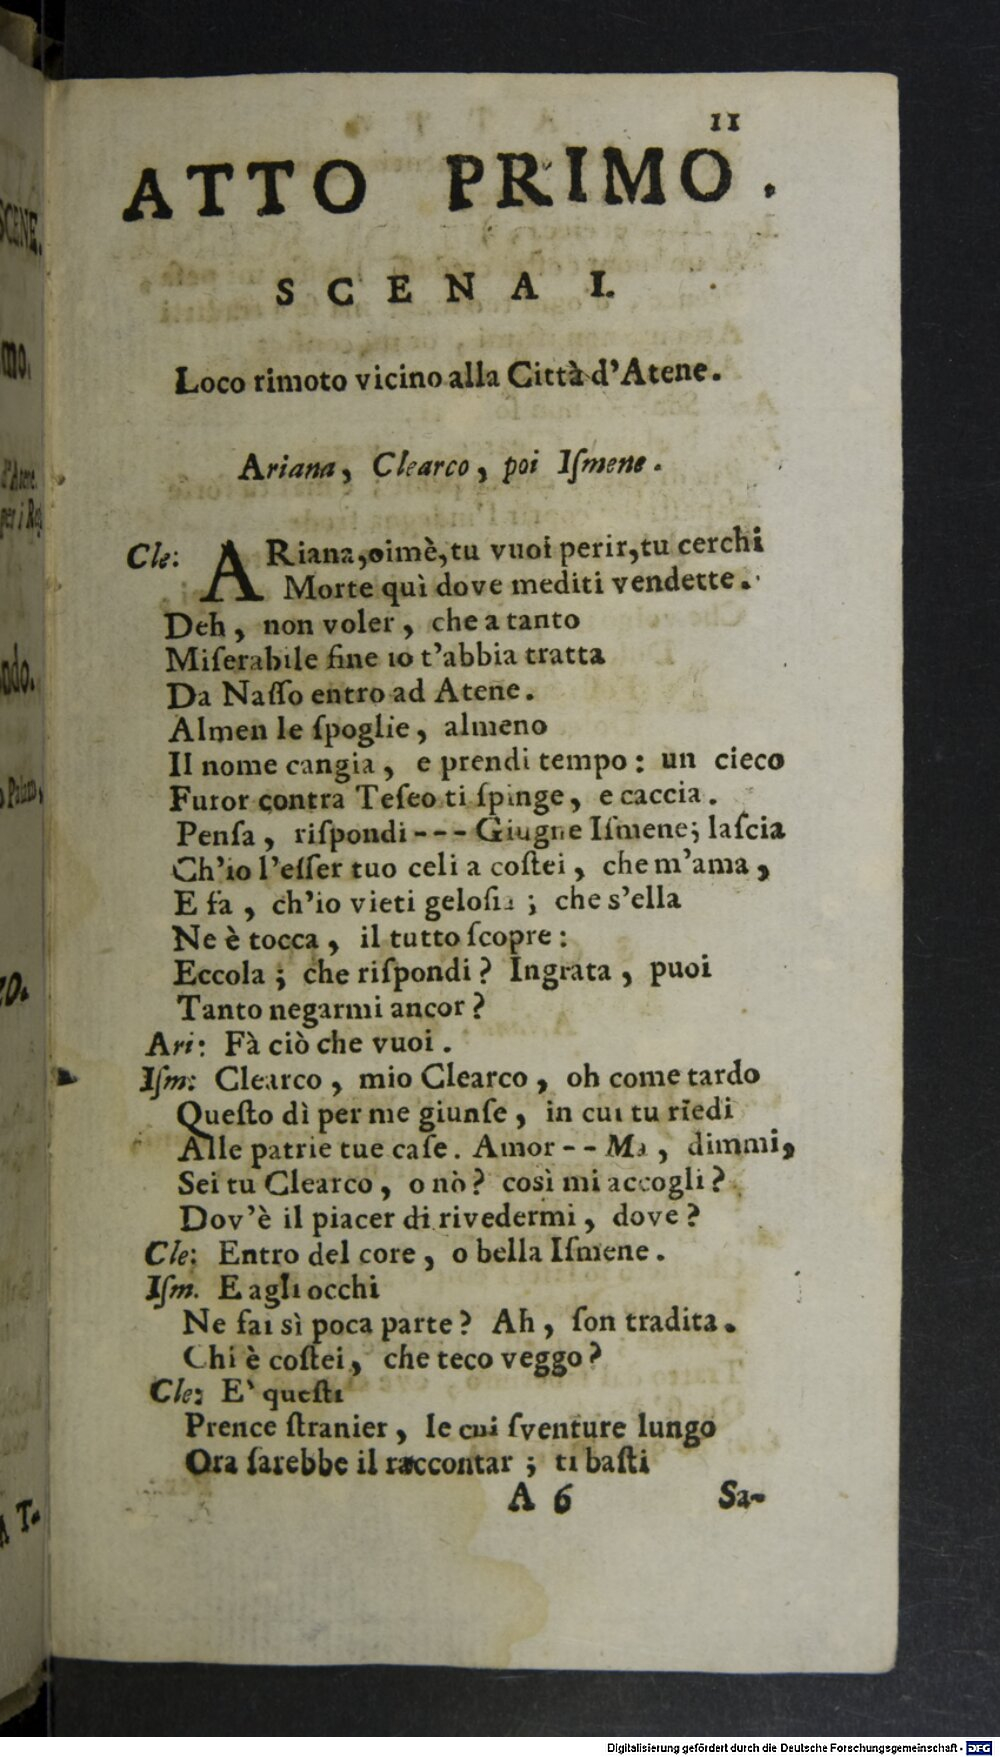 11
ATTO PRIMO.
SCENA I.
Loco rimoto vicino alla Città d'Atene.
Ariana, Clearco, poi Iſmene.
Cle: ARiana, oimè, tu vuoi perir, tu cerchi
Morte quì dove mediti vendette.
Deh, non voler, che a tanto
Miſerabile fine io t'abbia tratta
Da Naſſo entro ad Atene.
Almen le ſpoglie, almeno
Il nome cangia, e prendi tempo: un cieco
Furor contra Teſeo ti ſpinge, e caccia.
Penſa, riſpondi--- Giugne Iſmene; laſcia
Ch'io l'eſſer tuo celi a coſtei, che m'ama,
E fà, ch'io vieti geloſia; che s'ella
Ne è tocca, il tutto ſcopre:
Eccola; che riſpondi? Ingrata, puoi
Tanto negarmi ancor?
Ari: Fà ciò che vuoi.
Iſm: Clearco, mio Clearco, oh come tardo
Queſto dì per me giunſe, in cui tu riedi
Alle patrie tue caſe. Amor-- Ma, dimmi,
Sei tu Clearco, o nò? così mi accogli?
Dov'è il piacer di rivedermi, dove?
Cle: Entro del core, o bella Iſmene.
Iſm. E agli occhi
Ne fai sì poca parte? Ah, ſon tradita.
Chi è coſtei, che teco veggo?
Cle: E' queſti
Prence ſtranier, le cui ſventure lungo
Ora ſarebbe il raccontar; ti baſti
A 6 Sa-
SCENE.
mo.
d'Atene.
per i Re
ndo.
o Primo,
A T-
Digitalisierung gefördert durch die Deutsche Forschungsgemeinschaft - DFG